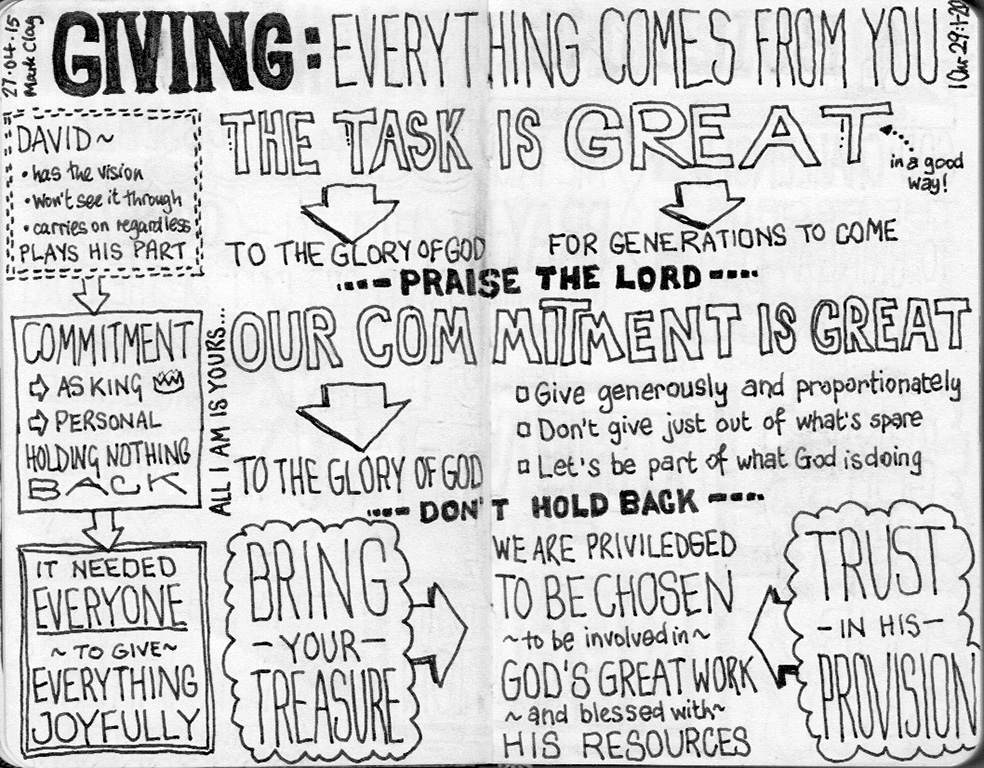 27·04·15
Mark Clay
GIVING: EVERYTHING COMES FROM YOU
DAVID~
• has the vision
• won't see it through
• carries on regardless
PLAYS HIS PART
COMMITMENT
AS KING
PERSONAL
HOLDING NOTHING
BACK
IT NEEDED
EVERYONE
~ TO GIVE ~
EVERYTHING
JOYFULLY
THE TASK IS GREAT
in a good
way!
TO THE GLORY OF GOD
FOR GENERATIONS TO COME
PRAISE THE LORD
ALL I AM IS YOURS...
OUR COMMITMENT IS GREAT
Give generously and proportionately
Don't give just out of what's spare
Let's be part of what God is doing
TO THE GLORY OF GOD
DON'T HOLD BACK
BRING
- YOUR -
TREASURE
WE ARE PRIVILEDGED
TO BE CHOSEN
~ to be involved in ~
GOD'S GREAT WORK
~ and blessed with ~
HIS RESOURCES
TRUST
- IN HIS -
PROVISION